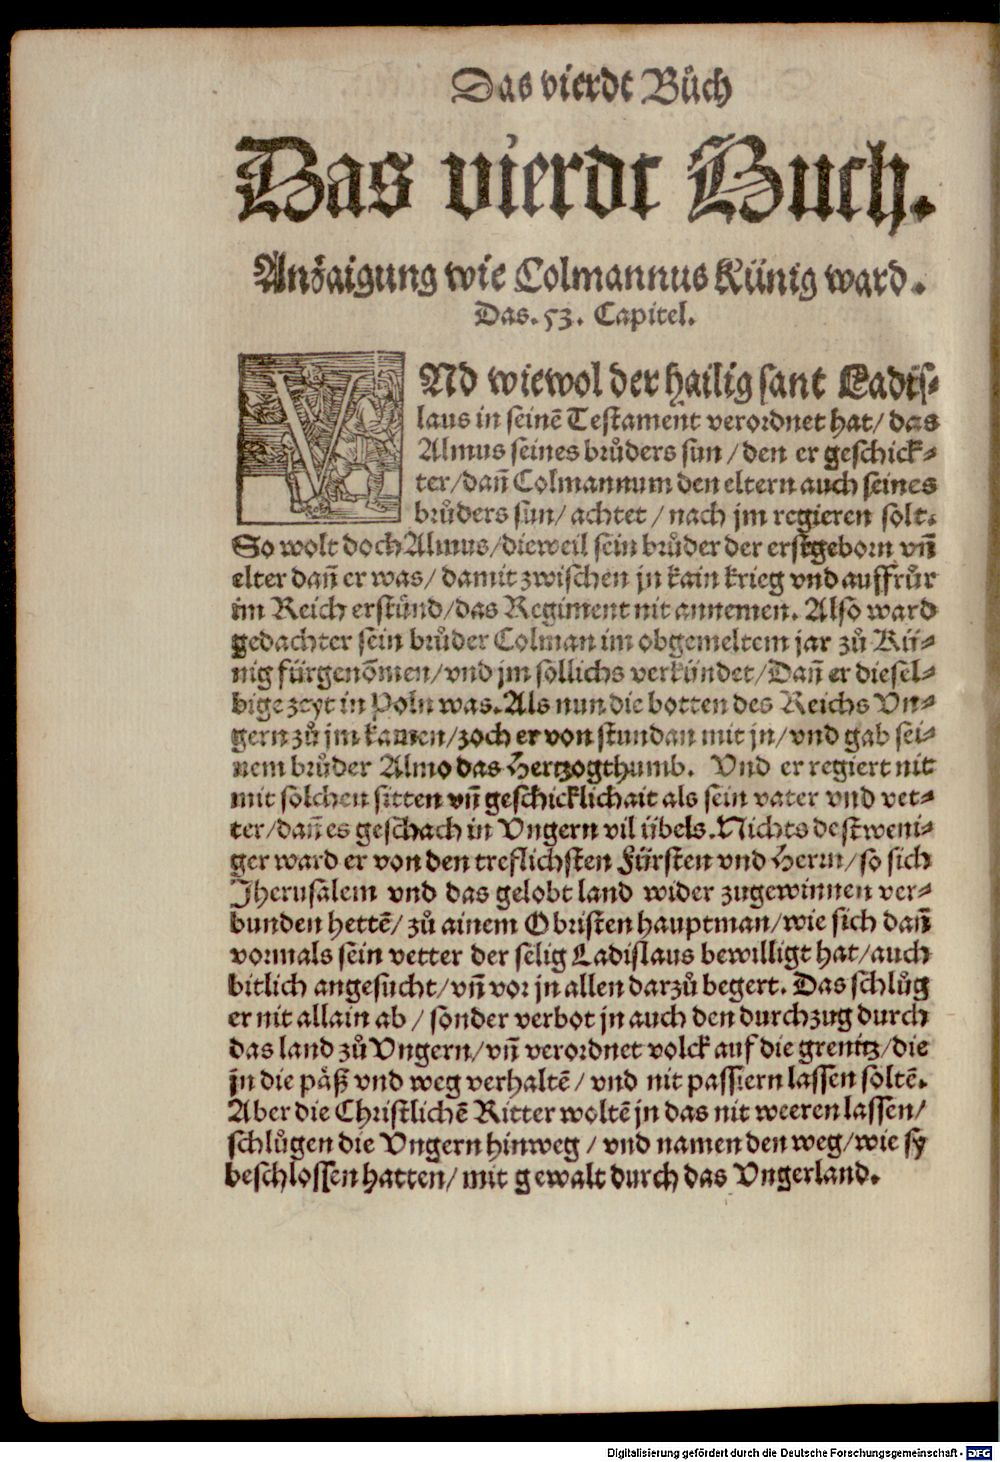 Das vierdt Bůch
Das vierdt Buch.
Anzaigung wie Colmannus Künig ward.
Das. 53. Capitel.
VNd wiewol der hailig sant Ladis-
laus in seinē Testament verordnet hat/ das
Almus seines brůders sun/ den er geschick-
ter/ dañ Colmannum den eltern auch seines
brůders sun/ achtet/ nach jm regieren solt.
So wolt doch Almus/ dieweil sein brůder der erstgeborn vñ
elter dañ er was/ damit zwischen jn kain krieg vnd auffrůr
im Reich erstünd/ das Regiment nit annemen. Also ward
gedachter sein brůder Colman im obgemeltem jar zů Kü-
nig fürgenōmen/ vnd jm söllichs verkündet/ Dañ er diesel-
bige zeyt in Poln was. Als nun die botten des Reichs Vn-
gern zů jm kamen/ zoch er von stundan mit jn/ vnd gab sei-
nem brůder Almo das Hertzogthumb. Vnd er regiert nit
mit solchen sitten vñ geschicklichait als sein vater vnd vet-
ter/ dañ es geschach in Vngern vil übels. Nichts destweni-
ger ward er von den treflichsten Fürsten vnd Herrn/ so sich
Jherusalem vnd das gelobt land wider zugewinnen ver-
bunden hettē/ zů ainem Obristen hauptman/ wie sich dañ
vormals sein vetter der selig Ladislaus bewilligt hat/ auch
bitlich angesucht/ vñ vor jn allen darzů begert. Das schlůg
er nit allain ab/ sonder verbot jn auch den durchzug durch
das land zů Vngern/ vñ verordnet volck auf die grenitz/ die
jn die päß vnd weg verhaltē/ vnd nit passiern lassen soltē.
Aber die Christlichē Ritter woltē jn das nit weeren lassen/
schlůgen die Vngern hinweg/ vnd namen den weg/ wie sy
beschlossen hatten/ mit gewalt durch das Vngerland.
Digitalisierung gefördert durch die Deutsche Forschungsgemeinschaft - DFG